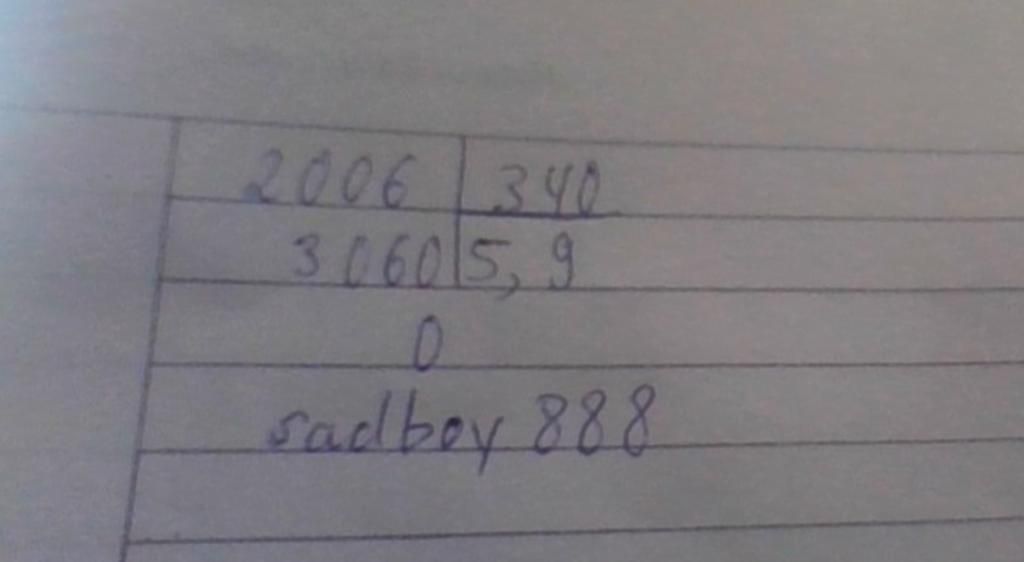 2006 340
3060 5,9
0
sadboy 888